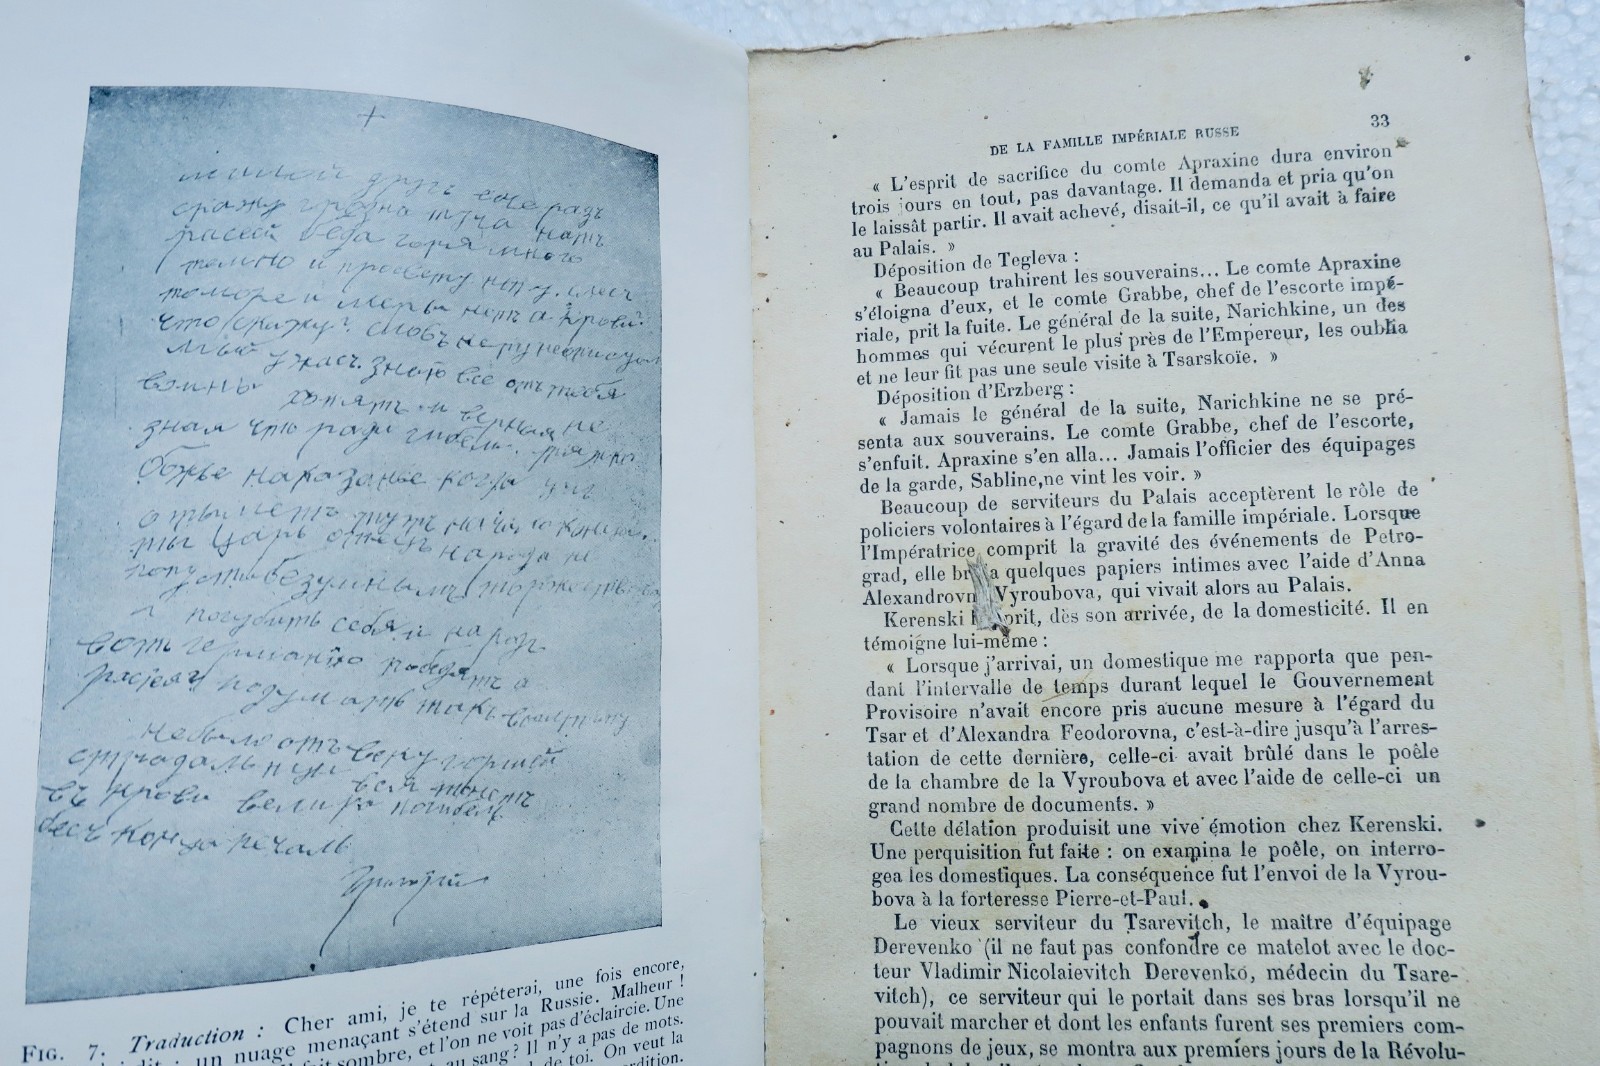 милый друг еще разъ
скажу грозна туча нат
расеей беда горя много
темно и просвету нету. слес
то море и меры нет а крови?
что скажу? словъ нету неописуом
мый ужас. знаю все отъ тебя
войны хотятъ и верная не
зная что ради гибели. тяжко
божье наказанье когда ум
отымет тут начало конца.
ты царь отец народа не
попусти безумнымъ торжествовать
и погубить себя и народ
вотъ германию победят а
расея? подумать такъ
не было отъ веку горшей
страдальицы вся тонет
въ крови велика погибель
бесъ конца печаль
Григорий
FIG. 7. Traduction : Cher ami, je te répéterai, une fois encore,
un nuage menaçant s'étend sur la Russie. Malheur !
fait sombre, et l'on ne voit pas d'éclaircie. Une
au sang ? Il n'y a pas de mots.
de toi. On veut la
DE LA FAMILLE IMPÉRIALE RUSSE 33
« L'esprit de sacrifice du comte Apraxine dura environ
trois jours en tout, pas davantage. Il demanda et pria qu'on
le laissât partir. Il avait achevé, disait-il, ce qu'il avait à faire
au Palais. »
Déposition de Tegleva :
« Beaucoup trahirent les souverains... Le comte Apraxine
s'éloigna d'eux, et le comte Grabbe, chef de l'escorte impé-
riale, prit la fuite. Le général de la suite, Narichkine, un des
hommes qui vécurent le plus près de l'Empereur, les oublia
et ne leur fit pas une seule visite à Tsarskoïe. »
Déposition d'Erzberg :
« Jamais le général de la suite, Narichkine ne se pré-
senta aux souverains. Le comte Grabbe, chef de l'escorte,
s'enfuit. Apraxine s'en alla... Jamais l'officier des équipages
de la garde, Sabline,ne vint les voir. »
Beaucoup de serviteurs du Palais acceptèrent le rôle de
policiers volontaires à l'égard de la famille impériale. Lorsque
l'Impératrice comprit la gravité des événements de Petro-
grad, elle a quelques papiers intimes avec l'aide d'Anna
Vyroubova, qui vivait alors au Palais.
Kerenski dès son arrivée, de la domesticité. Il en
témoigne lui-même :
« Lorsque j'arrivai, un domestique me rapporta que pen-
dant l'intervalle de temps durant lequel le Gouvernement
Provisoire n'avait encore pris aucune mesure à l'égard du
Tsar et d'Alexandra Feodorovna, c'est-à-dire jusqu'à l'arres-
tation de cette dernière, celle-ci avait brûlé dans le poêle
de la chambre de la Vyroubova et avec l'aide de celle-ci un
grand nombre de documents. »
Cette délation produisit une vive émotion chez Kerenski.
Une perquisition fut faite : on examina le poêle, on interro-
gea les domestiques. La conséquence fut l'envoi de la Vyrou-
bova à la forteresse Pierre-et-Paul.
Le vieux serviteur du Tsarevitch, le maître d'équipage
Derevenko (il ne faut pas confondre ce matelot avec le doc-
teur Vladimir Nicolaievitch Derevenko, médecin du Tsare-
vitch), ce serviteur qui le portait dans ses bras lorsqu'il ne
pouvait marcher et dont les enfants furent ses premiers com-
pagnons de jeux, se montra aux premiers jours de la Révolu-